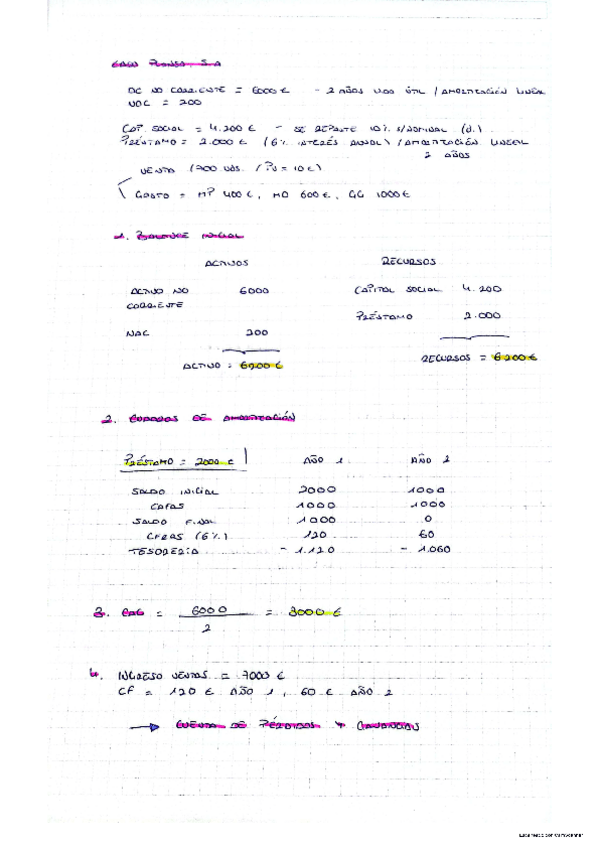 PLONSA, S.A
NO CORRIENTE = 6000 € - 2 AÑOS VIDA ÚTIL / AMORTIZACIÓN LINEAL
= 200
CAP. SOCIAL = 4.200 € - SE REPARTE 10% S/NOMINAL (d.)
PRÉSTAMO = 2.000 € (6% INTERÉS ANUAL) / AMORTIZACIÓN LINEAL
2 AÑOS
VENTA (700 UDS. / PU = 10 €)
GASTO = MP 400 €, MO 600 €, GG 1000 €
1. BALANCE INICIAL
ACTIVOS RECURSOS
ACTIVO NO CORRIENTE 6000 CAPITAL SOCIAL 4.200
PRÉSTAMO 2.000
200
ACTIVO = 6200 € RECURSOS = 6200 €
2. CUADROS DE AMORTIZACIÓN
PRÉSTAMO = 2000 € AÑO 1 AÑO 2
SALDO INICIAL 2000 1000
1000 1000
SALDO FINAL 1000 0
(6%) 120 60
TESORERÍA - 1.120 - 1.060
3. = 6000 / 2 = 3000 €
4. INGRESO VENTAS = 7000 €
CF = 120 € AÑO 1, 60 € AÑO 2
→ CUENTA DE PÉRDIDAS Y GANANCIAS